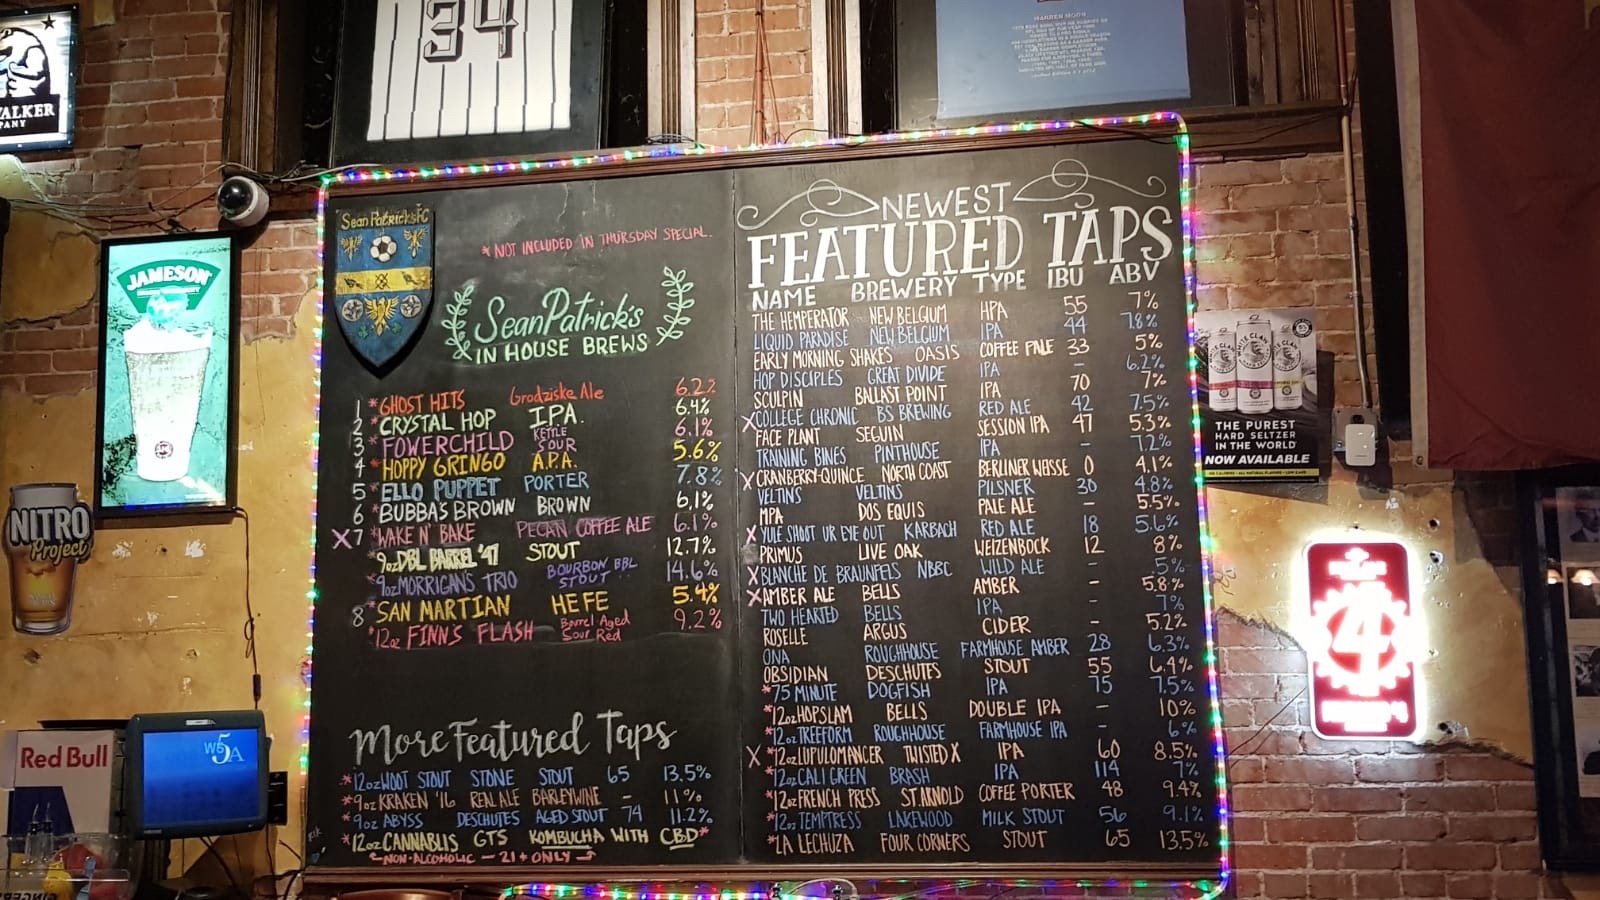 34
WARREN MOON
WALKER
PANY
JAMESON
NITRO
Project
Red Bull
W5A
Sean Patrick's FC
*NOT INCLUDED IN THURSDAY SPECIAL.
Sean Patrick's
IN HOUSE BREWS
1 *GHOST HITS Grodziske Ale 6.2%
2 *CRYSTAL HOP I.P.A. 6.4%
3 *FOWERCHILD KETTLE SOUR 6.1%
4 *HOPPY GRINGO A.P.A. 5.6%
5 *ELLO PUPPET PORTER 7.8%
6 *BUBBA'S BROWN BROWN 6.1%
X7 *WAKE N' BAKE PECAN COFFEE ALE 6.1%
*9oz DBL BARREL '47 STOUT 12.7%
*9oz MORRIGAN'S TRIO BOURBON BBL STOUT 14.6%
8 *SAN MARTIAN HEFE 5.4%
*12oz FINN'S FLASH Barrel-Aged Sour Red 9.2%
More Featured Taps
*12oz WOOT STOUT STONE STOUT 65 13.5%
*9oz KRAKEN '16 REAL ALE BARLEYWINE - 11%
*9oz ABYSS DESCHUTES AGED STOUT 74 11.2%
*12oz CANNABLIS GTS KOMBUCHA WITH CBD*
NON-ALCOHOLIC - 21+ ONLY
NEWEST
FEATURED TAPS
NAME BREWERY TYPE IBU ABV
THE HEMPERATOR NEW BELGIUM HPA 55 7%
LIQUID PARADISE NEW BELGIUM IPA 44 7.8%
EARLY MORNING SHAKES OASIS COFFEE PALE 33 5%
HOP DISCIPLES GREAT DIVIDE IPA - 6.2%
SCULPIN BALLAST POINT IPA 70 7%
XCOLLEGE CHRONIC BS BREWING RED ALE 42 7.5%
FACE PLANT SEGUIN SESSION IPA 47 5.3%
TRAINING BINES PINTHOUSE IPA - 7.2%
XCRANBERRY-QUINCE NORTH COAST BERLINER WEISSE 0 4.1%
VELTINS VELTINS PILSNER 30 4.8%
MPA DOS EQUIS PALE ALE - 5.5%
XYULE SHOOT UR EYE OUT KARBACH RED ALE 18 5.6%
PRIMUS LIVE OAK WEIZENBOCK 12 8%
XBLANCHE DE BRAUNFELS NBBC WILD ALE - 5%
XAMBER ALE BELLS AMBER - 5.8%
TWO HEARTED BELLS IPA - 7%
ROSELLE ARGUS CIDER - 5.2%
ONA ROUGHHOUSE FARMHOUSE AMBER 28 6.3%
OBSIDIAN DESCHUTES STOUT 55 6.4%
*75 MINUTE DOGFISH IPA 75 7.5%
*12oz HOPSLAM BELLS DOUBLE IPA - 10%
*12oz TREEFORM ROUGHHOUSE FARMHOUSE IPA - 6%
X*12oz LUPULOMANCER TWISTED X IPA 60 8.5%
*12oz CALI GREEN BRASH IPA 114 7%
*12oz FRENCH PRESS ST. ARNOLD COFFEE PORTER 48 9.4%
*12oz TEMPTRESS LAKEWOOD MILK STOUT 56 9.1%
*LA LECHUZA FOUR CORNERS STOUT 65 13.5%
WHITE CLAW
THE PUREST
HARD SELTZER
IN THE WORLD
NOW AVAILABLE
4